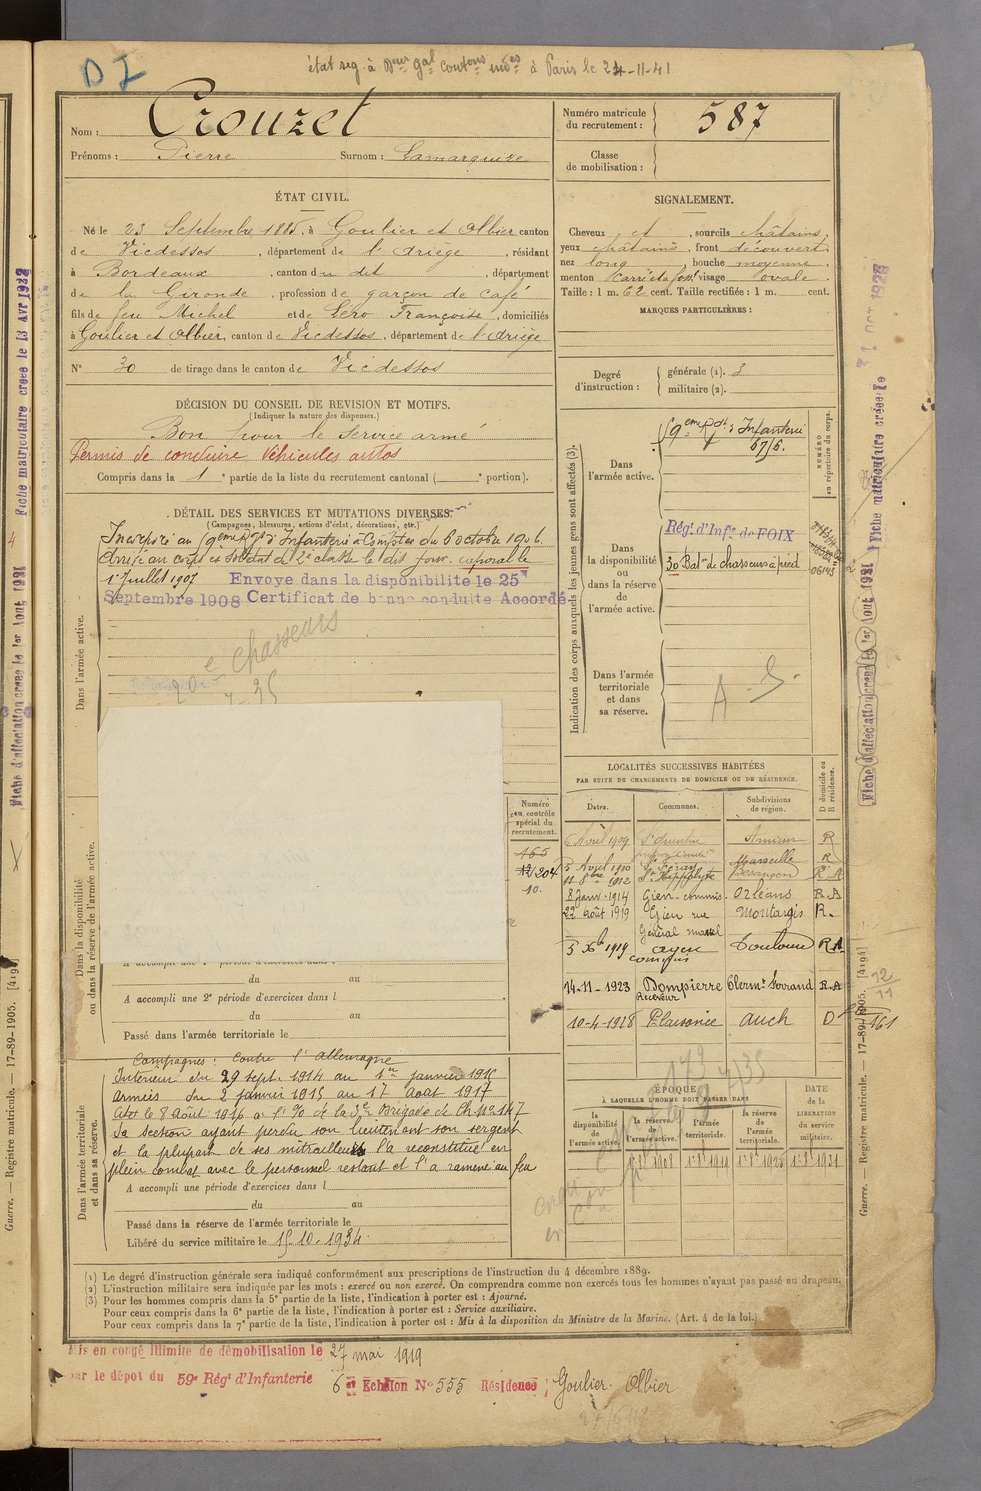 D I
état sig. à Dion gal contons indes à Paris le 24-11-41
Nom : Crouzet
Prénoms : Pierre Surnom : Lamarquise
Numéro matricule
du recrutement : 587
Classe
de mobilisation :
ÉTAT CIVIL.
Né le 23 Septembre 1885, à Goulier et Olbier canton
de Vicdessos, département de l'Ariège, résidant
à Bordeaux, canton du dit, département
de la Gironde, profession de garçon de café
fils de feu Michel et de Séro Françoise, domiciliés
à Goulier et Olbier, canton de Vicdessos, département de l'Ariège
N° 30 de tirage dans le canton de Vicdessos
SIGNALEMENT.
Cheveux et, sourcils châtains,
yeux châtains, front découvert
nez long, bouche moyenne,
menton carré à foss. visage ovale.
Taille : 1 m. 62 cent. Taille rectifiée : 1 m. cent.
MARQUES PARTICULIÈRES :
Degré
d'instruction :
générale (1). 3
militaire (2).
DÉCISION DU CONSEIL DE REVISION ET MOTIFS.
(Indiquer la nature des dispenses.)
Bon pour le service armé
Permis de conduire Véhicules autos
Compris dans la 1e partie de la liste du recrutement cantonal ( e portion).
DÉTAIL DES SERVICES ET MUTATIONS DIVERSES
(Campagnes, blessures, actions d'éclat, décorations, etc.)
Incorporé au 9eme Rgt d'Infanterie à Compter du 6 octobre 1906.
Arrivé au corps et soldat de 2e classe le dit jour. caporal le
1er Juillet 1907 Envoyé dans la disponibilité le 25
Septembre 1908 Certificat de bonne conduite Accordé
e chasseurs
Dans l'armée active.
Indication des corps auxquels les jeunes gens sont affectés (3).
Dans
l'armée active.
9eme Rgt d'Infanterie
6716.
NUMÉRO
au répertoire du corps.
Dans
la disponibilité
ou
dans la réserve
de
l'armée active.
Régt d'Infie de FOIX
30 Batn de chasseurs à pied
Dans l'armée
territoriale
et dans
sa réserve.
A. S.
Numéro
au contrôle
spécial du
recrutement.
165
12/204
10.
LOCALITÉS SUCCESSIVES HABITÉES
PAR SUITE DE CHANGEMENTS DE DOMICILE OU DE RÉSIDENCE.
Dates. Communes. Subdivisions
de région. D domicile ou
R résidence.
6 Avril 1909 St Quentin Amiens R
5 Avril 1910 Marseille R
11 8bre 1912 St Hippolyte Besançon R.A
8 Janv. 1914 Gien commis. Orléans R.A
22 août 1919 Gien rue Montargis R.
Général
5 Xbre 1919 Toulouse R A
commis
14-11-1923 Dompierre Clermt Ferrand R A
Receveur
10-4-1928 Plaisance Auch D
161
12
11
Dans la disponibilité
ou dans la réserve de l'armée active.
du au
A accompli une 2e période d'exercices dans l
du au
Passé dans l'armée territoriale le
Dans l'armée territoriale
et dans sa réserve.
Campagnes : Contre l'Allemagne
Intérieur du 29 sept. 1914 au 1er janvier 1915
Armées du 2 janvier 1915 au 17 août 1917
Cité le 8 Août 1916 à l'O/ de la 3e Brigade de Ch. N° 147
Sa section ayant perdu son lieutenant son sergent
et la plupart de ses mitrailleurs l'a reconstituée en
plein combat avec le personnel restant et l'a ramené au feu
A accompli une période d'exercices dans l
du au
Passé dans la réserve de l'armée territoriale le
Libéré du service militaire le 15.10.1934.
ÉPOQUE
À LAQUELLE L'HOMME DOIT PASSER DANS
la
disponibilité
de
l'armée active.
la réserve
de
l'armée active.
l'armée
territoriale.
la réserve
de
l'armée
territoriale.
DATE
de la
LIBÉRATION
du service
militaire.
(1) Le degré d'instruction générale sera indiqué conformément aux prescriptions de l'instruction du 4 décembre 1889.
(2) L'instruction militaire sera indiquée par les mots : exercé ou non exercé. On comprendra comme non exercés tous les hommes n'ayant pas passé au drapeau.
(3) Pour les hommes compris dans la 5e partie de la liste, l'indication à porter est : Ajourné.
Pour ceux compris dans la 6e partie de la liste, l'indication à porter est : Service auxiliaire.
Pour ceux compris dans la 7e partie de la liste, l'indication à porter est : Mis à la disposition du Ministre de la Marine. (Art. 4 de la loi.)
Mis en congé illimité de démobilisation le 27 mai 1919
par le dépôt du 59e Régt d'Infanterie 6e Echelon N° 555 Résidence : Goulier-Olbier
Fiche matriculaire créée le 13 Avr 1932
Fiche d'affectation créée le 1er Août 1921
Guerre. — Registre matricule. — 17-89-1905. [4194]
Fiche matriculaire créée le 31 OCT 1928
Fiche d'affectation créée le 1er Août 1921
Guerre. — Registre matricule. — 17-89-1905. [4194]